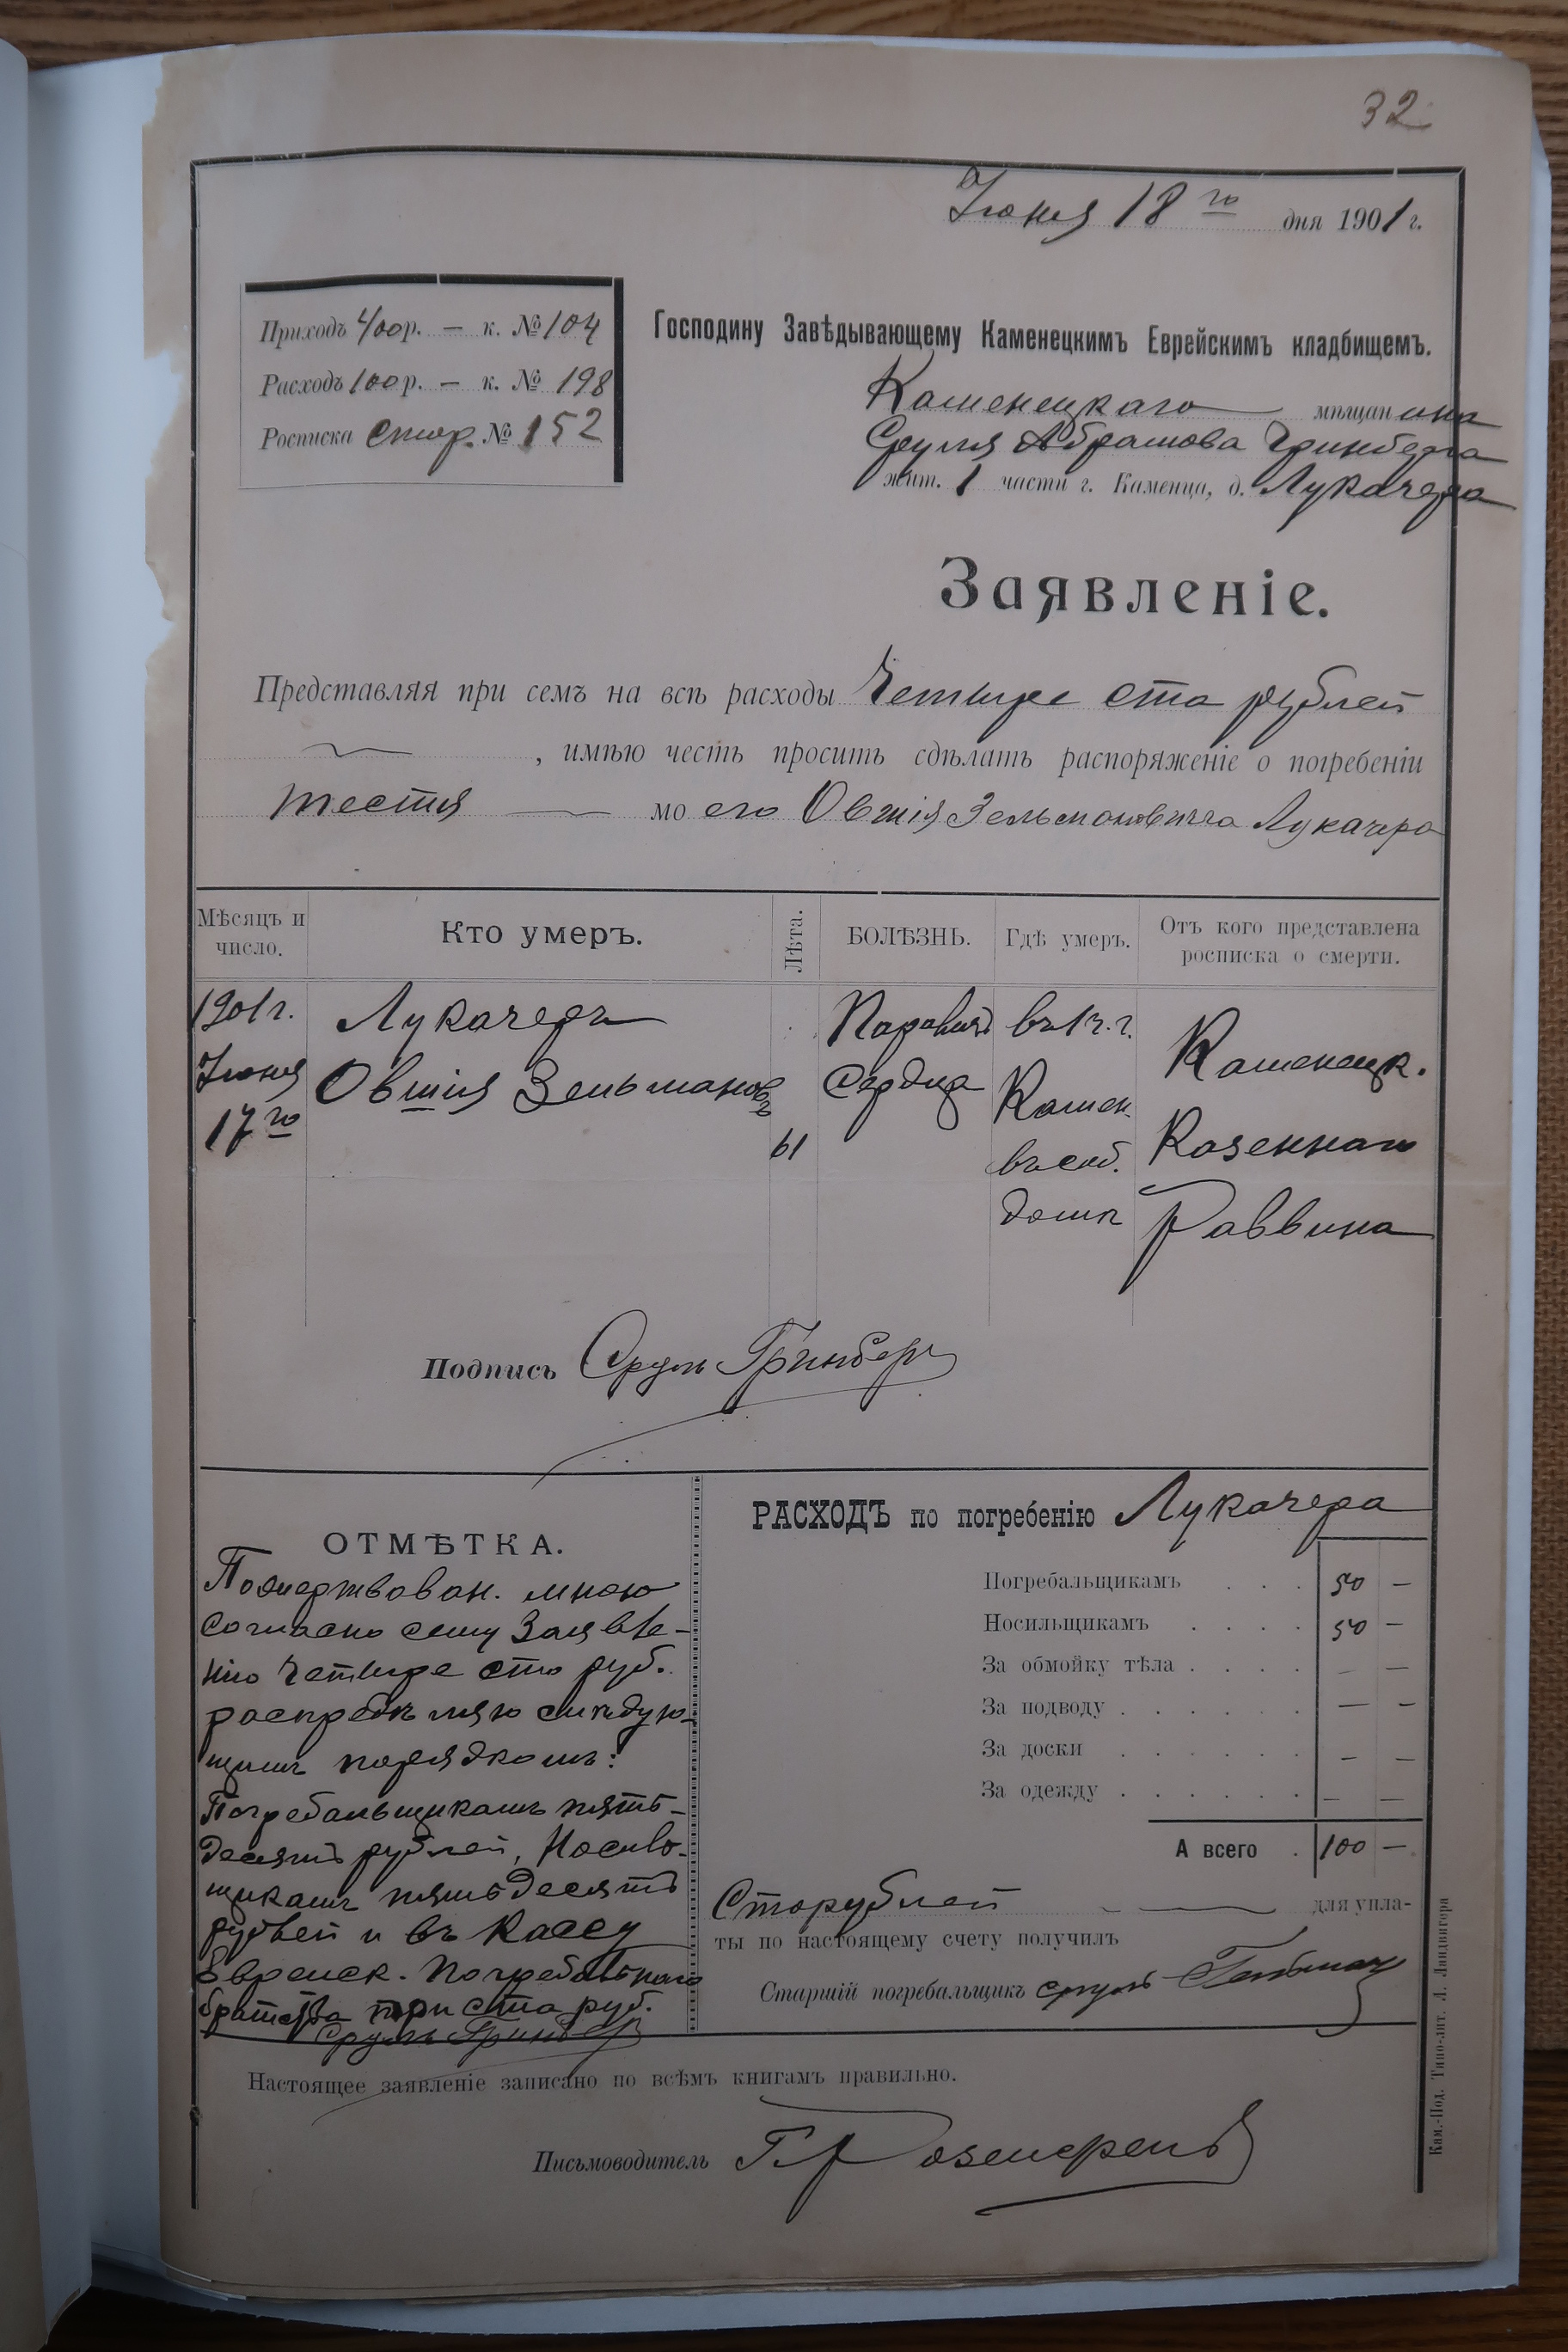 32
Іюня 18 го дня 1901 г.
Приходъ 400 р. — к. № 104
Расходъ 100 р. — к. № 198
Росписка стор. № 152
Господину Завѣдывающему Каменецкимъ Еврейскимъ кладбищемъ.
Каменецкаго мѣщанина
Сруля Абрамова Гринберга
жит. 1 части г. Каменца, д. Лукачера
Заявленіе.
Представляя при семъ на всѣ расходы Четыре ста рублей
, имѣю честь просить сдѣлать распоряженіе о погребеніи
тестя — моего Овшія Зельмановича Лукачера
Мѣсяцъ и число.
Кто умеръ.
Лѣта.
БОЛѢЗНЬ.
Гдѣ умеръ.
Отъ кого представлена росписка о смерти.
1901 г.
Іюня
17 го
Лукачеръ
Овшія Зельмановъ
61
Параличъ
Сердца
въ 1 ч. г.
Камен.
въ соб.
домѣ
Каменецк.
Казеннаго
Раввина
Подпись Сруль Гринберг
ОТМѢТКА.
Пожертвован. мною
согласно сему Заявле-
нію Четыре сто руб.
распредѣляю слѣдую-
щимъ порядкомъ:
Погребальщикамъ пять-
десятъ рублей, Носиль-
щикамъ пятьдесятъ
рублей и въ Кассу
Еврейск. Погребальнаго
братства три ста руб.
Сруль Гринберг
РАСХОДЪ по погребенію Лукачера
Погребальщикамъ . . . 50 —
Носильщикамъ . . . . 50 —
За обмойку тѣла . . . . — —
За подводу . . . . . . — —
За доски . . . . . . — —
За одежду . . . . . . — —
А всего . 100 —
Сто рублей — для упла-
ты по настоящему счету получилъ
Старшій погребальщикъ Сруль
Настоящее заявленіе записано по всѣмъ книгамъ правильно.
Письмоводитель
Кам.-Под. Типо-лит. Л. Ландвигера